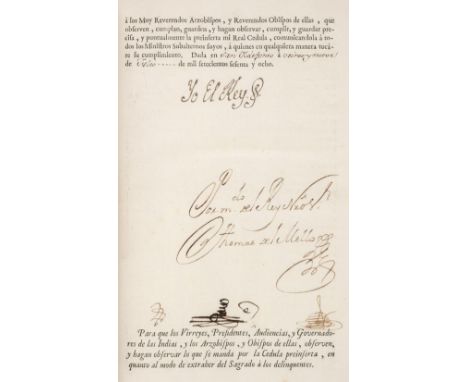 à los Muy Reverendos Arzobispos, y Reverendos Obispos de ellas, que
observen, cumplan, guarden, y hagan observar, cumplir, y guardar pre-
cisa, y puntualmente la preinserta mi Real Cedula, comunicandola à to-
dos los Ministros Subalternos suyos, à quienes en qualquiera manera tocà-
re su cumplimiento. Dada en San Ildefonso à veinte y nueve
de Julio de mil setecientos sesenta y ocho.
Yo El Rey
Por m.do del Rey Nro S.r
Thomas del Mello
Para que los Virreyes, Presidentes, Audiencias, y Governado-
res de las Indias, y los Arzobispos, y Obispos de ellas, observen,
y hagan observar lo que se manda por la Cedula preinserta, en
quanto al modo de extraher del Sagrado à los delinquentes.